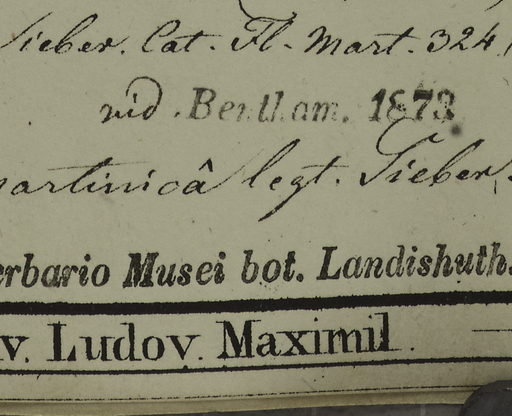 Sieber. Cat. Fl. Mart. 324.
vid. Bentham. 1873
martinicâ legt. Sieber.
erbario Musei bot. Landishuth.
v. Ludov. Maximil.